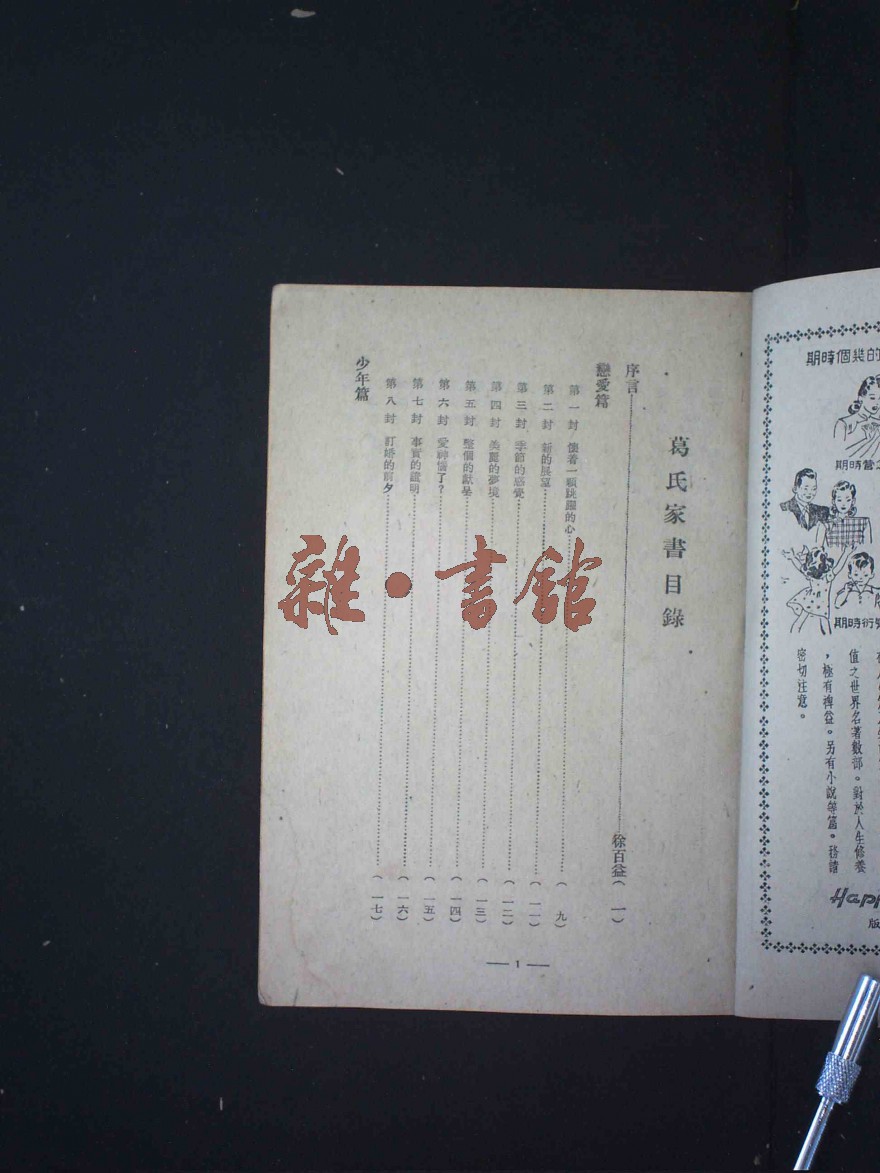 葛氏家書目錄
序言 徐百益(一)
戀愛篇
第一封 懷着一顆跳躍的心 (九)
第二封 新的展望 (一一)
第三封 季節的感覺 (一二)
第四封 美麗的夢境 (一三)
第五封 整個的獻呈 (一四)
第六封 愛神惱了? (一五)
第七封 事實的證明 (一六)
第八封 訂婚的前夕 (一七)
少年篇
— 1 —
雜•書館
期時個幾的
期時營
期時術
值之世界名著數部。對於人生修養
，極有裨益。另有小說等篇。務請
密切注意。
Happ
版